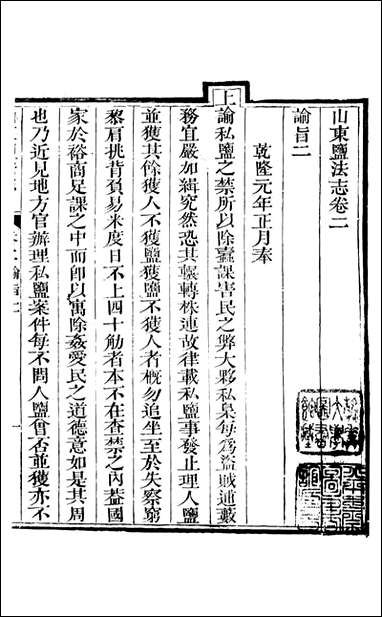 山東鹽法志卷二
諭旨二
乾隆元年正月奉
上
諭私鹽之禁所以除蠹課害民之弊大夥私梟每為盜賊逋藪
務宜嚴加緝究然恐其輾轉株連故律載私鹽事發止理人鹽
並獲其餘獲人不獲鹽獲鹽不獲人者概勿追坐至於失察窮
黎肩挑背負易米度日不上四十觔者本不在查禁之內蓋國
家於裕商足課之中而即以寓除姦愛民之道德意如是其周
也乃近見地方官辦理私鹽案件每不問人鹽曾否並獲亦不